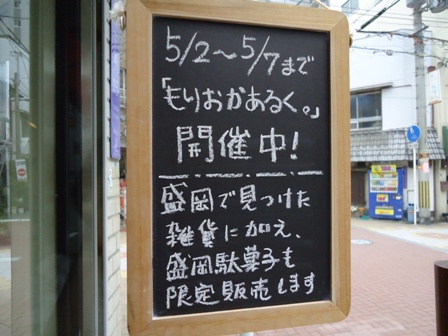 5/2～5/7まで
「もりおかあるく。」
開催中!
盛岡で見つけた
雑貨に加え、
盛岡駄菓子も
限定販売します